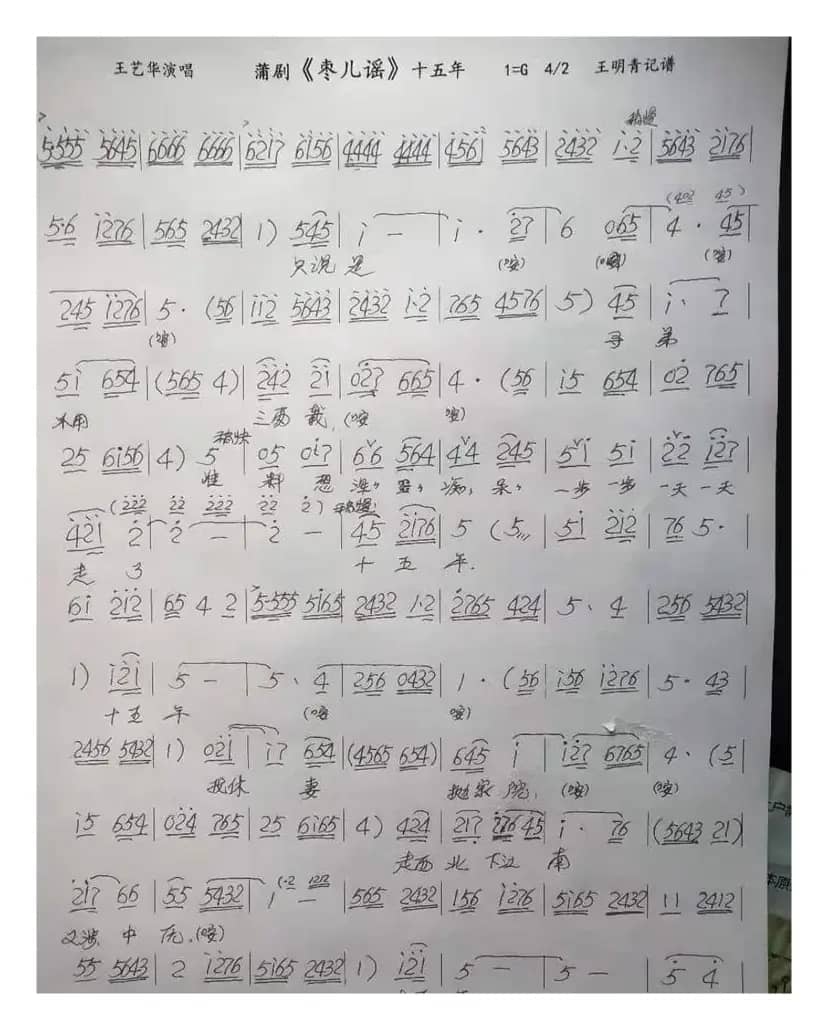 王艺华演唱 蒲剧《枣儿谣》十五年 1=G 4/2 王明青记谱
稍慢
5555 5645 | 6666 6666 | 6217 6156 | 4444 4444 | 4561 5643 | 2432 1·2 | 5643 2176
5·6 1276 | 565 2432 | 1) 545 | 1 — | 1 · 27 | 6 065 | 4 · 45
只说是 (咹) (咹)
245 1276 | 5 · (56 | 112 5643 | 2432 1·2 | 765 4576 | 5) 45 | 1 · 7
寻 弟
51 654 | (565 4) | 242 21 | 027 665 | 4 · (56 | 15 654 | 02 765
不用 三两载, (咹) (咹)
稍快
25 6156 | 4) 5 | 05 017 | 66 564 | 44 245 | 51 51 | 22 127
谁料想 一步一步 一天一天
(222 22 222 22 2) 稍慢
421 2 | 2 — | 2 — | 45 2176 | 5 (5 | 51 212 | 76 5·
走了 十五年.
61 212 | 65 4 2 | 5·555 5165 | 2432 1·2 | 2765 424 | 5 · 4 | 256 5432
1) 121 | 5 — | 5 · 4 | 256 0432 | 1 · (56 | 156 1276 | 5 · 43
十五年 (咹) (咹)
2456 5432 | 1) 021 | 17 654 | (4565 654) | 645 1 | 127 6765 | 4 · (5
抛休妻 抛家院, (咹) (咹)
15 654 | 024 765 | 25 6165 | 4) 424 | 217 276 45 | 1 · 76 | (5643 21)
走西北下江南
217 66 | 55 5432 | 1 — | 565 2432 | 156 1276 | 5165 2432 | 11 2412
又涉中原, (咹)
55 5643 | 2 1276 | 5165 2432 | 1) 121 | 5 — | 5 — | 5 4